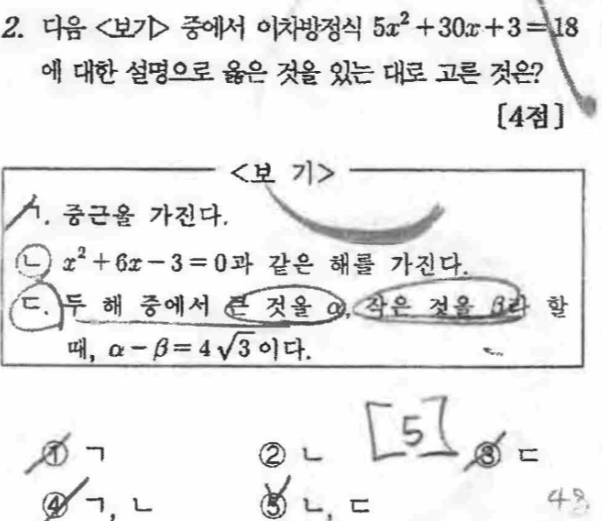 2. 다음 <보기> 중에서 이차방정식 5x²+30x+3=18
에 대한 설명으로 옳은 것을 있는 대로 고른 것은?
[4점]
<보 기>
ㄱ. 중근을 가진다.
ㄴ. x²+6x-3=0과 같은 해를 가진다.
ㄷ. 두 해 중에서 큰 것을 α, 작은 것을 β라 할
때, α-β=4√3이다.
① ㄱ ② ㄴ [5] ③ ㄷ
④ ㄱ, ㄴ ⑤ ㄴ, ㄷ 48